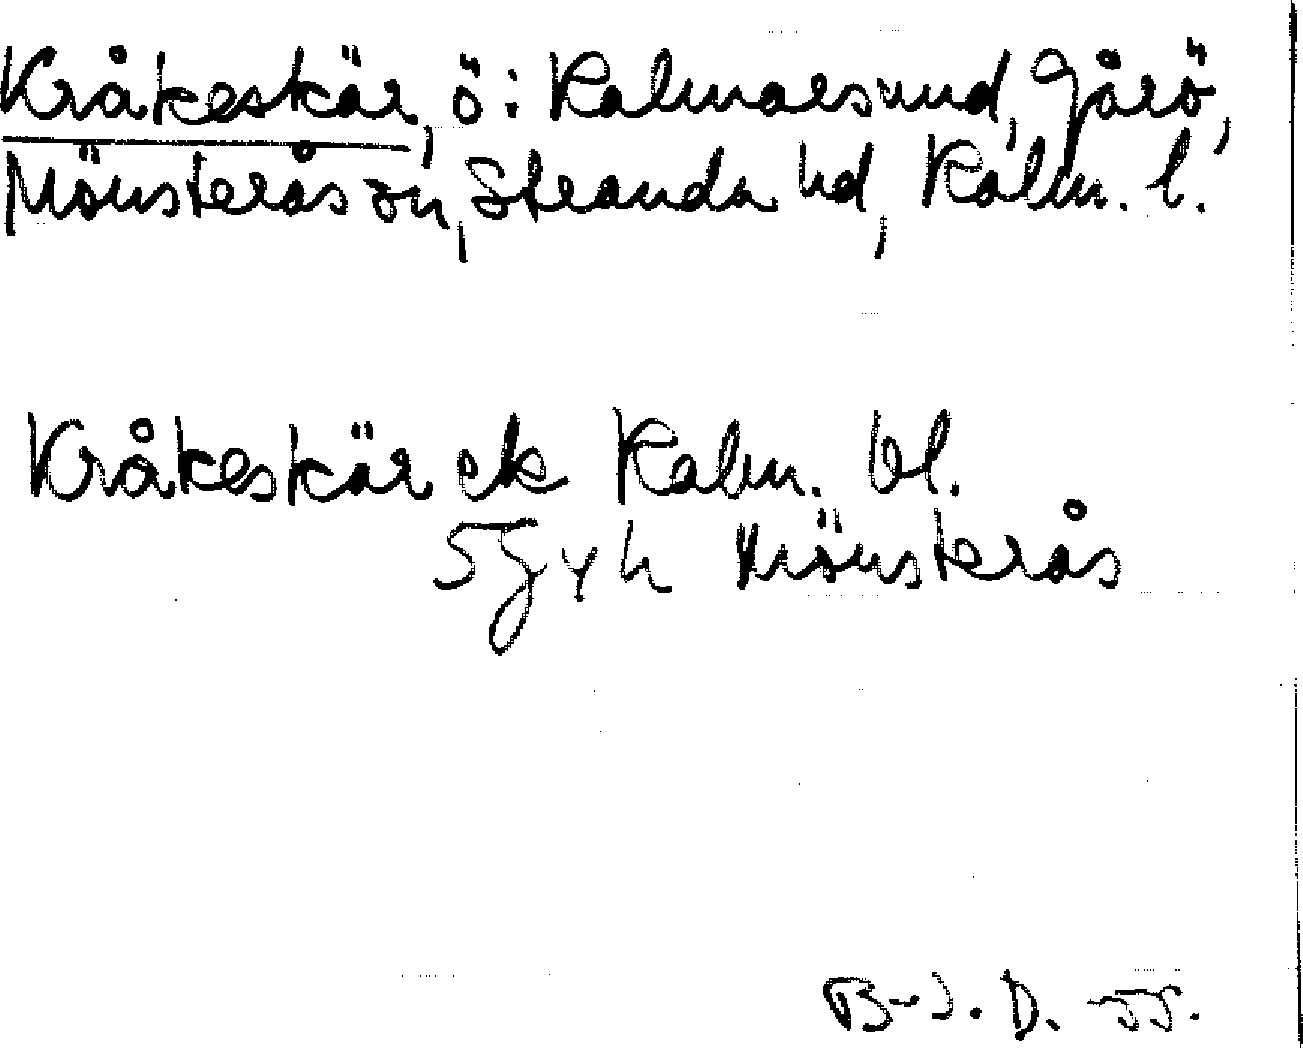 Kråkeskär, ö: Kalmarsund, Gårö,
Mönsterås sn, Stranda hd, Kalm. l.
Kråkeskär ek Kalm. bl.
5G y h Mönsterås
B-J. D. -55.